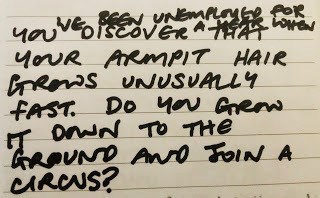 'VE BEEN UNEMPLOYED FOR
A YEAR WHEN
YOU DISCOVER THAT
YOUR ARMPIT HAIR
GROWS UNUSUALLY
FAST. DO YOU GROW
IT DOWN TO THE
GROUND AND JOIN A
CIRCUS?